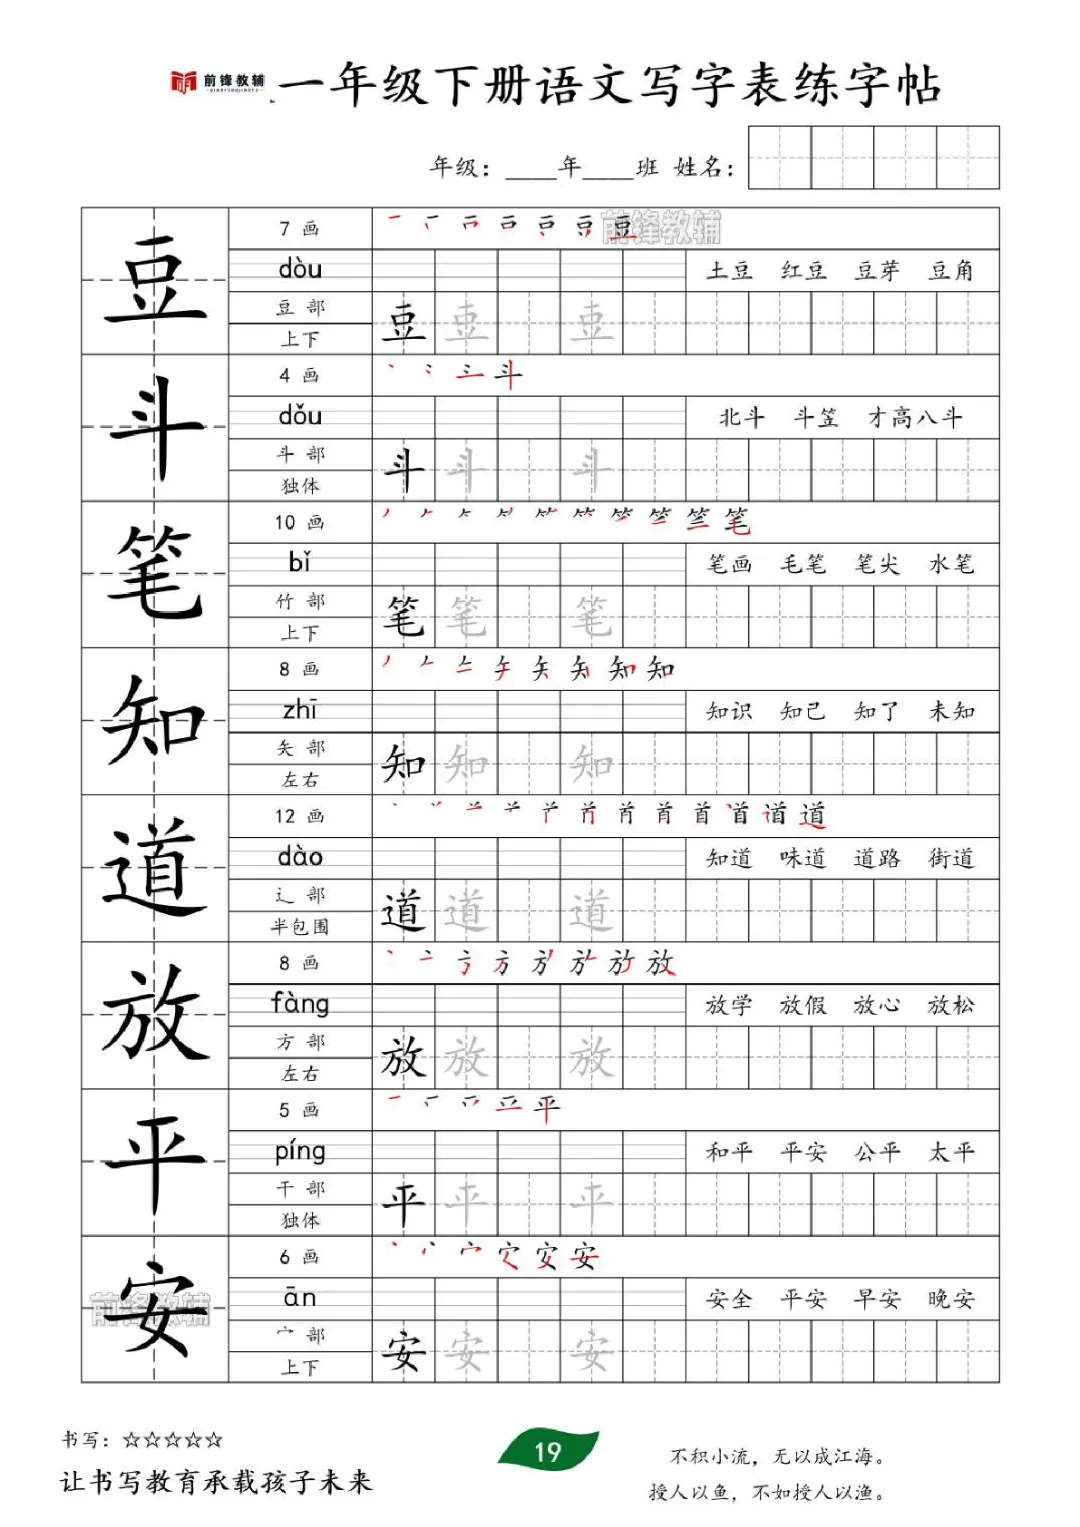 前锋教辅
一年级下册语文写字表练字帖
年级：____年____班 姓名：
豆
7 画
前锋教辅
dòu
土豆 红豆 豆芽 豆角
豆 部
豆 豆 豆
上下
斗
4 画
dǒu
北斗 斗笠 才高八斗
斗 部
斗 斗 斗
独体
笔
10 画
bǐ
笔画 毛笔 笔尖 水笔
竹 部
笔 笔 笔
上下
知
8 画
zhī
知识 知己 知了 未知
矢 部
知 知 知
左右
道
12 画
dào
知道 味道 道路 街道
辶 部
道 道 道
半包围
放
8 画
fàng
放学 放假 放心 放松
方 部
放 放 放
左右
平
5 画
píng
和平 平安 公平 太平
干 部
平 平 平
独体
安
前锋教辅
6 画
ān
安全 平安 早安 晚安
宀 部
安 安 安
上下
书写：☆☆☆☆☆
让书写教育承载孩子未来
19
不积小流，无以成江海。
授人以鱼，不如授人以渔。